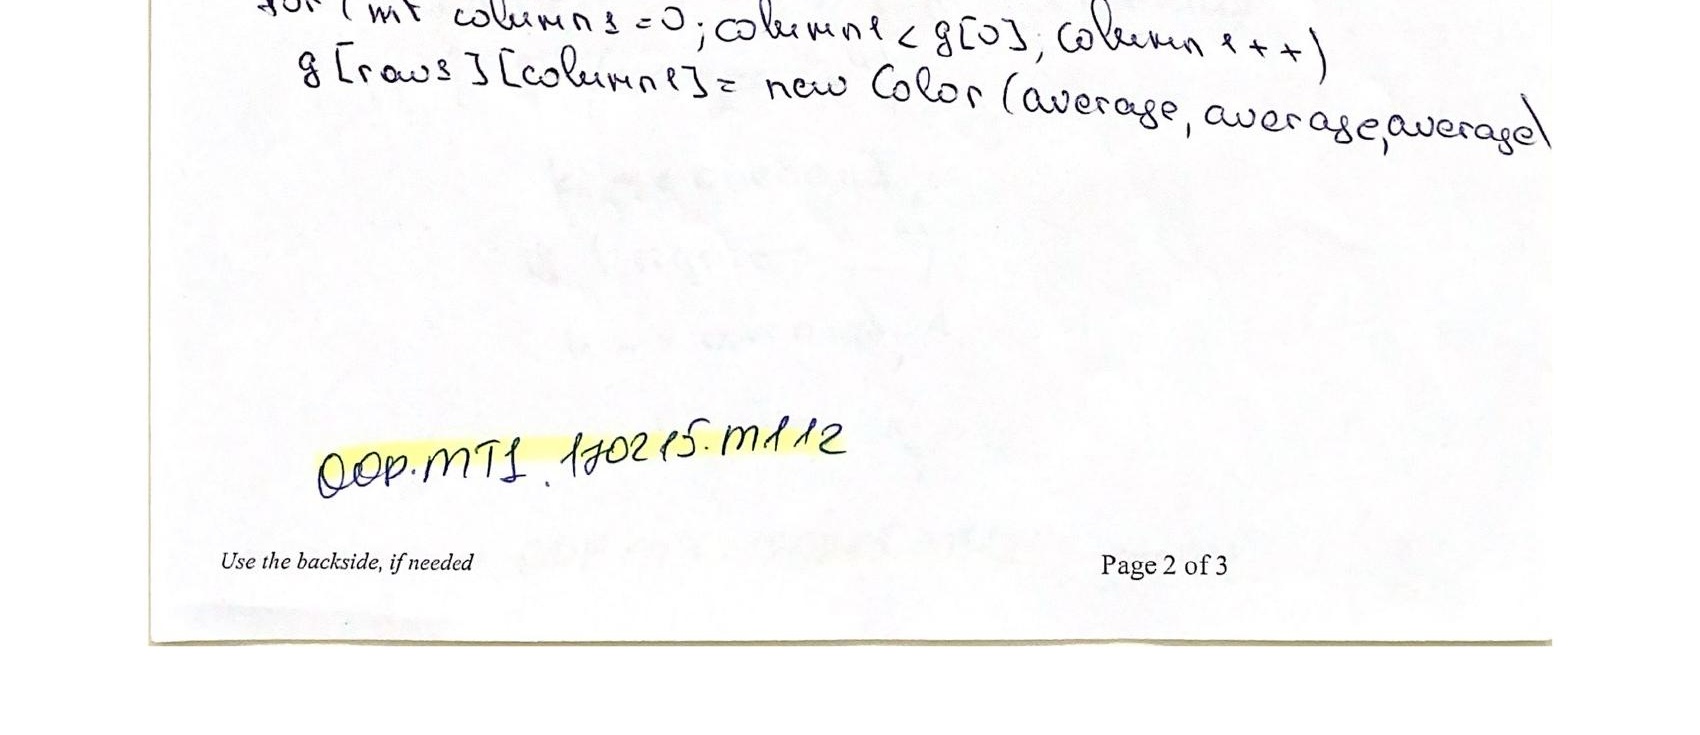 for (int columns =0; columns < g[0]; columns++)
g[rows][columns] = new Color (average, average, average)
OOP.MT1.170215.M112
Use the backside, if needed
Page 2 of 3